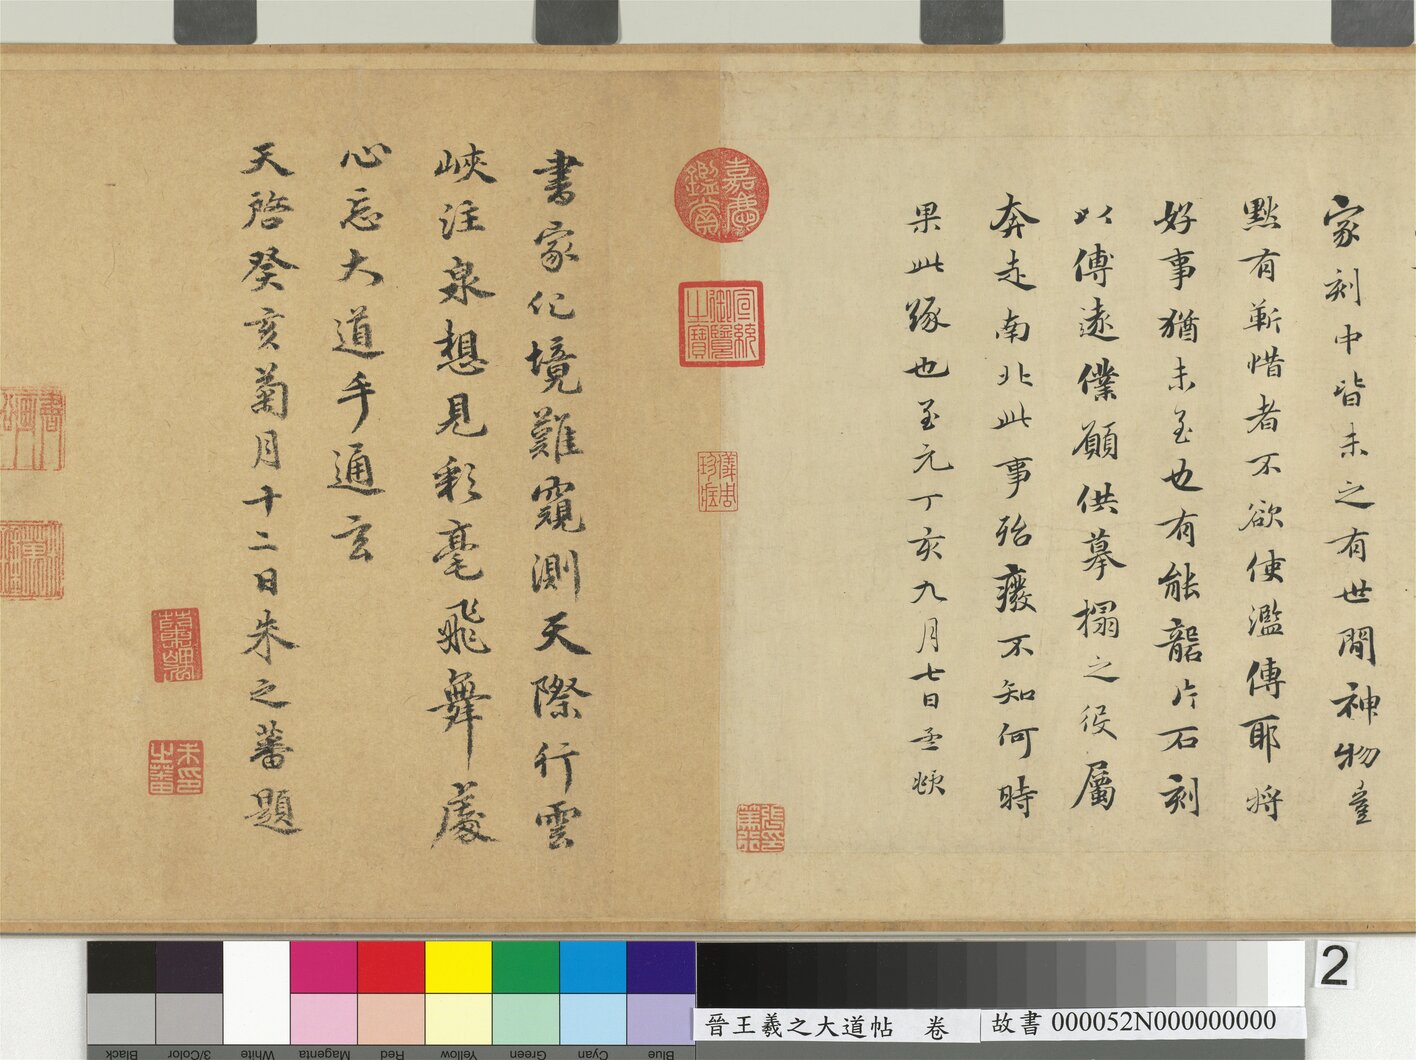 家刻中皆未之有世間神物董
默有蘄惜者不欲使濫傳耶將
好事猶未至也有能礱片石刻
以傳遠僕願供摹搨之役屬
奔走南北此事殆癈不知何時
果此緣也至元丁亥九月七日孟頫
嘉慶鑑賞
宣統御覽之寶
書家化境難窺測天際行雲
峽注泉想見彩毫飛舞處
心忘大道手通玄
天啓癸亥菊月十二日朱之蕃題
朱印之蕃
2
晉王羲之大道帖 卷
故書 000052N000000000
Black
3/Color
White
Magenta
Red
Yellow
Green
Cyan
Blue